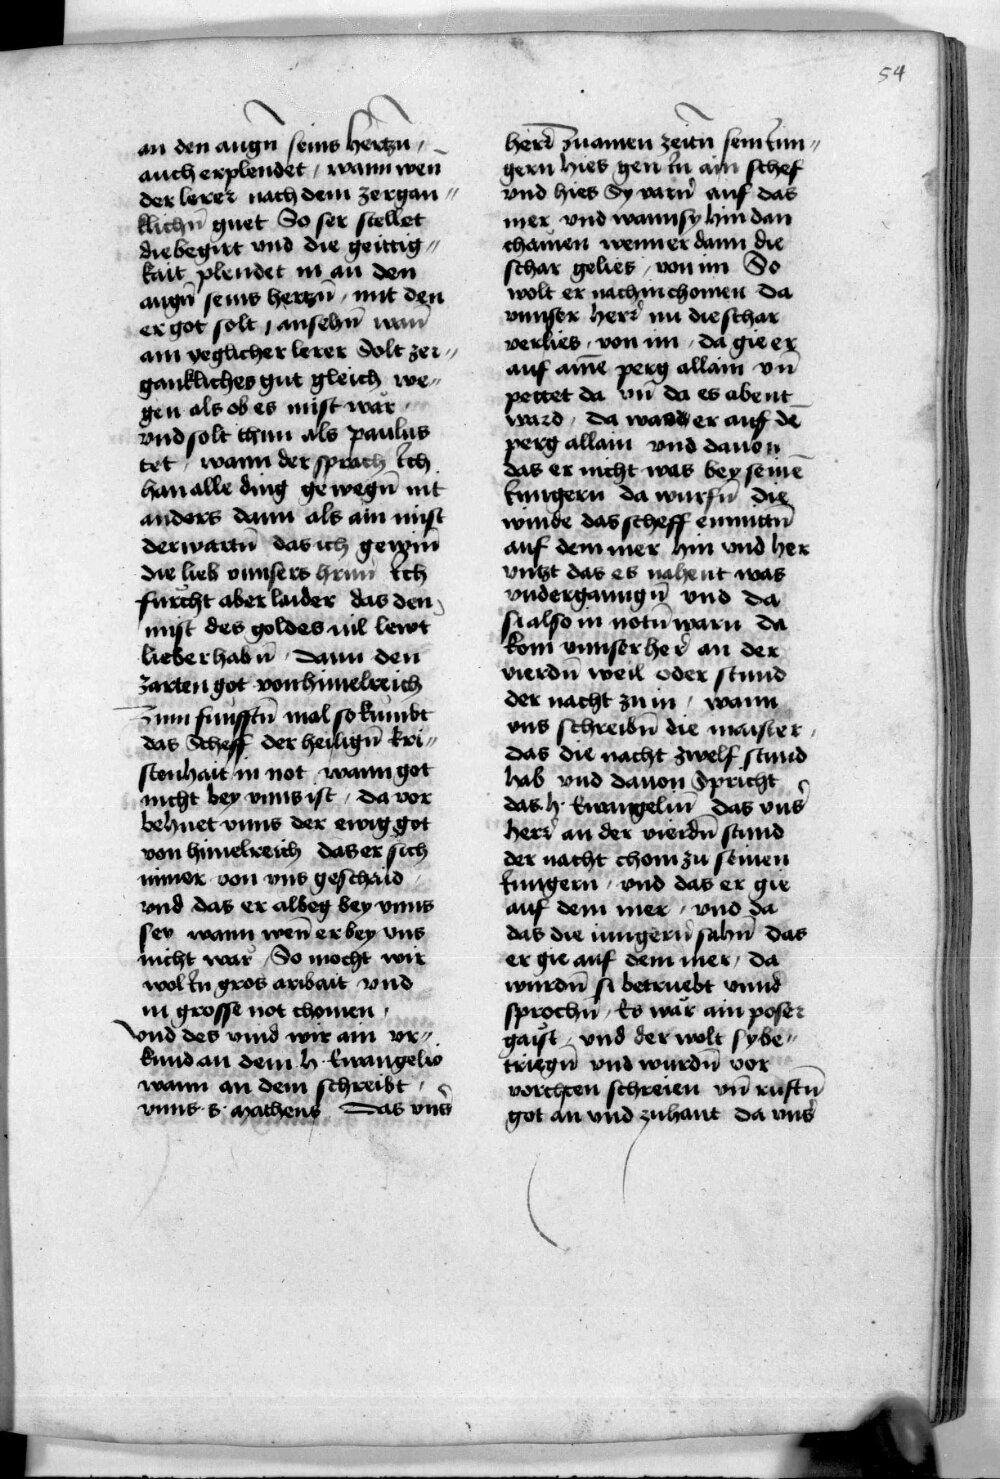 54
an den augn̄ seins hertzn̄ /
auch erplendet / wann wen̄
der lerer nach dem zergan〃
klichn̄ guet So ser stellet
die begirt vnd die geittig〃
kait plendet in an den
augn̄ seins hertzn̄ / mit den
er got solt / ansehn̄ wan̄
ain yeglicher lerer Solt zer〃
gankliches gut gleich we〃
gen als ob es mist wär
vnd solt thun als paulus
tet / wann der sprach Ich
han alle ding gewegn̄ nit
anders dann als ain mist
der wartn̄ das ich gewin̄
die lieb vnnsers hrnn̄ Ich
fürcht aber laider das den
mist des goldes vil lewt
lieber habn̄ / dann den
zarten got von himelreich
Zum funfftn̄ mal so kumbt
das Scheff der heilign̄ kri〃
stenhait in not / wann got
nicht bey vnns ist / da vor
behuet vnns der ewig got
von himelreich das er sich
nimer von vns geschaid
vnd das er albeg bey vnns
sey wann wen̄ er bey vns
nicht wär / So mocht wir
wol In gros aribait vnd
in grosse not chomen /
vnd des vind wir ain vr〃
kund an dem h. Ewangelio
wann an dem schreibt /
vnns s. Matheus Das vns̄
herr̄ zu ainen zeitn̄ sein Iun〃
gern hies gen In ain schef
vnd hies Sy varn̄ auf das
mer vnd wann sy hin dan
chämen wenn er dann die
schar gelies / von im So
wolt er nach in chomen Da
vnnser herr̄ nu die schar
verlies / von im / da gie er
auf aine̅ perg allain vn̄
pettet da vn̄ da es abent
ward / da was er auf de̅
perg allain vnd dauon
das er nicht was bey seine̅
Iungern da wurfn̄ die
winde das scheff enmittn̄
auf dem mer hin vnd her
vntzt das es nahent was
vndergangn̄ vnd da
si also in notn̄ warn da
kom vnnser her̄ an der
vierdn̄ weil oder stund
der nacht zu in / wann
vns schreibn̄ die maister /
das die nacht zwelf stund
hab vnd dauon Spricht
das h. Ewangelium̄ das vns̄
herr̄ an der vierdn̄ stund
der nacht chom zu seinen
Iungern / vnd das er gie
auf dem mer / vnd da
das die iungern̄ sahn̄ das
er gie auf dem mer / da
wurdn̄ si betruebt vnnd
sprochn̄ / Es wär ain poser
gaist / vnd der wolt sy be〃
triegn̄ vnd wurdn̄ vor
vorchten schreien vn̄ ruftn̄
got an vnd zuhant da vns̄